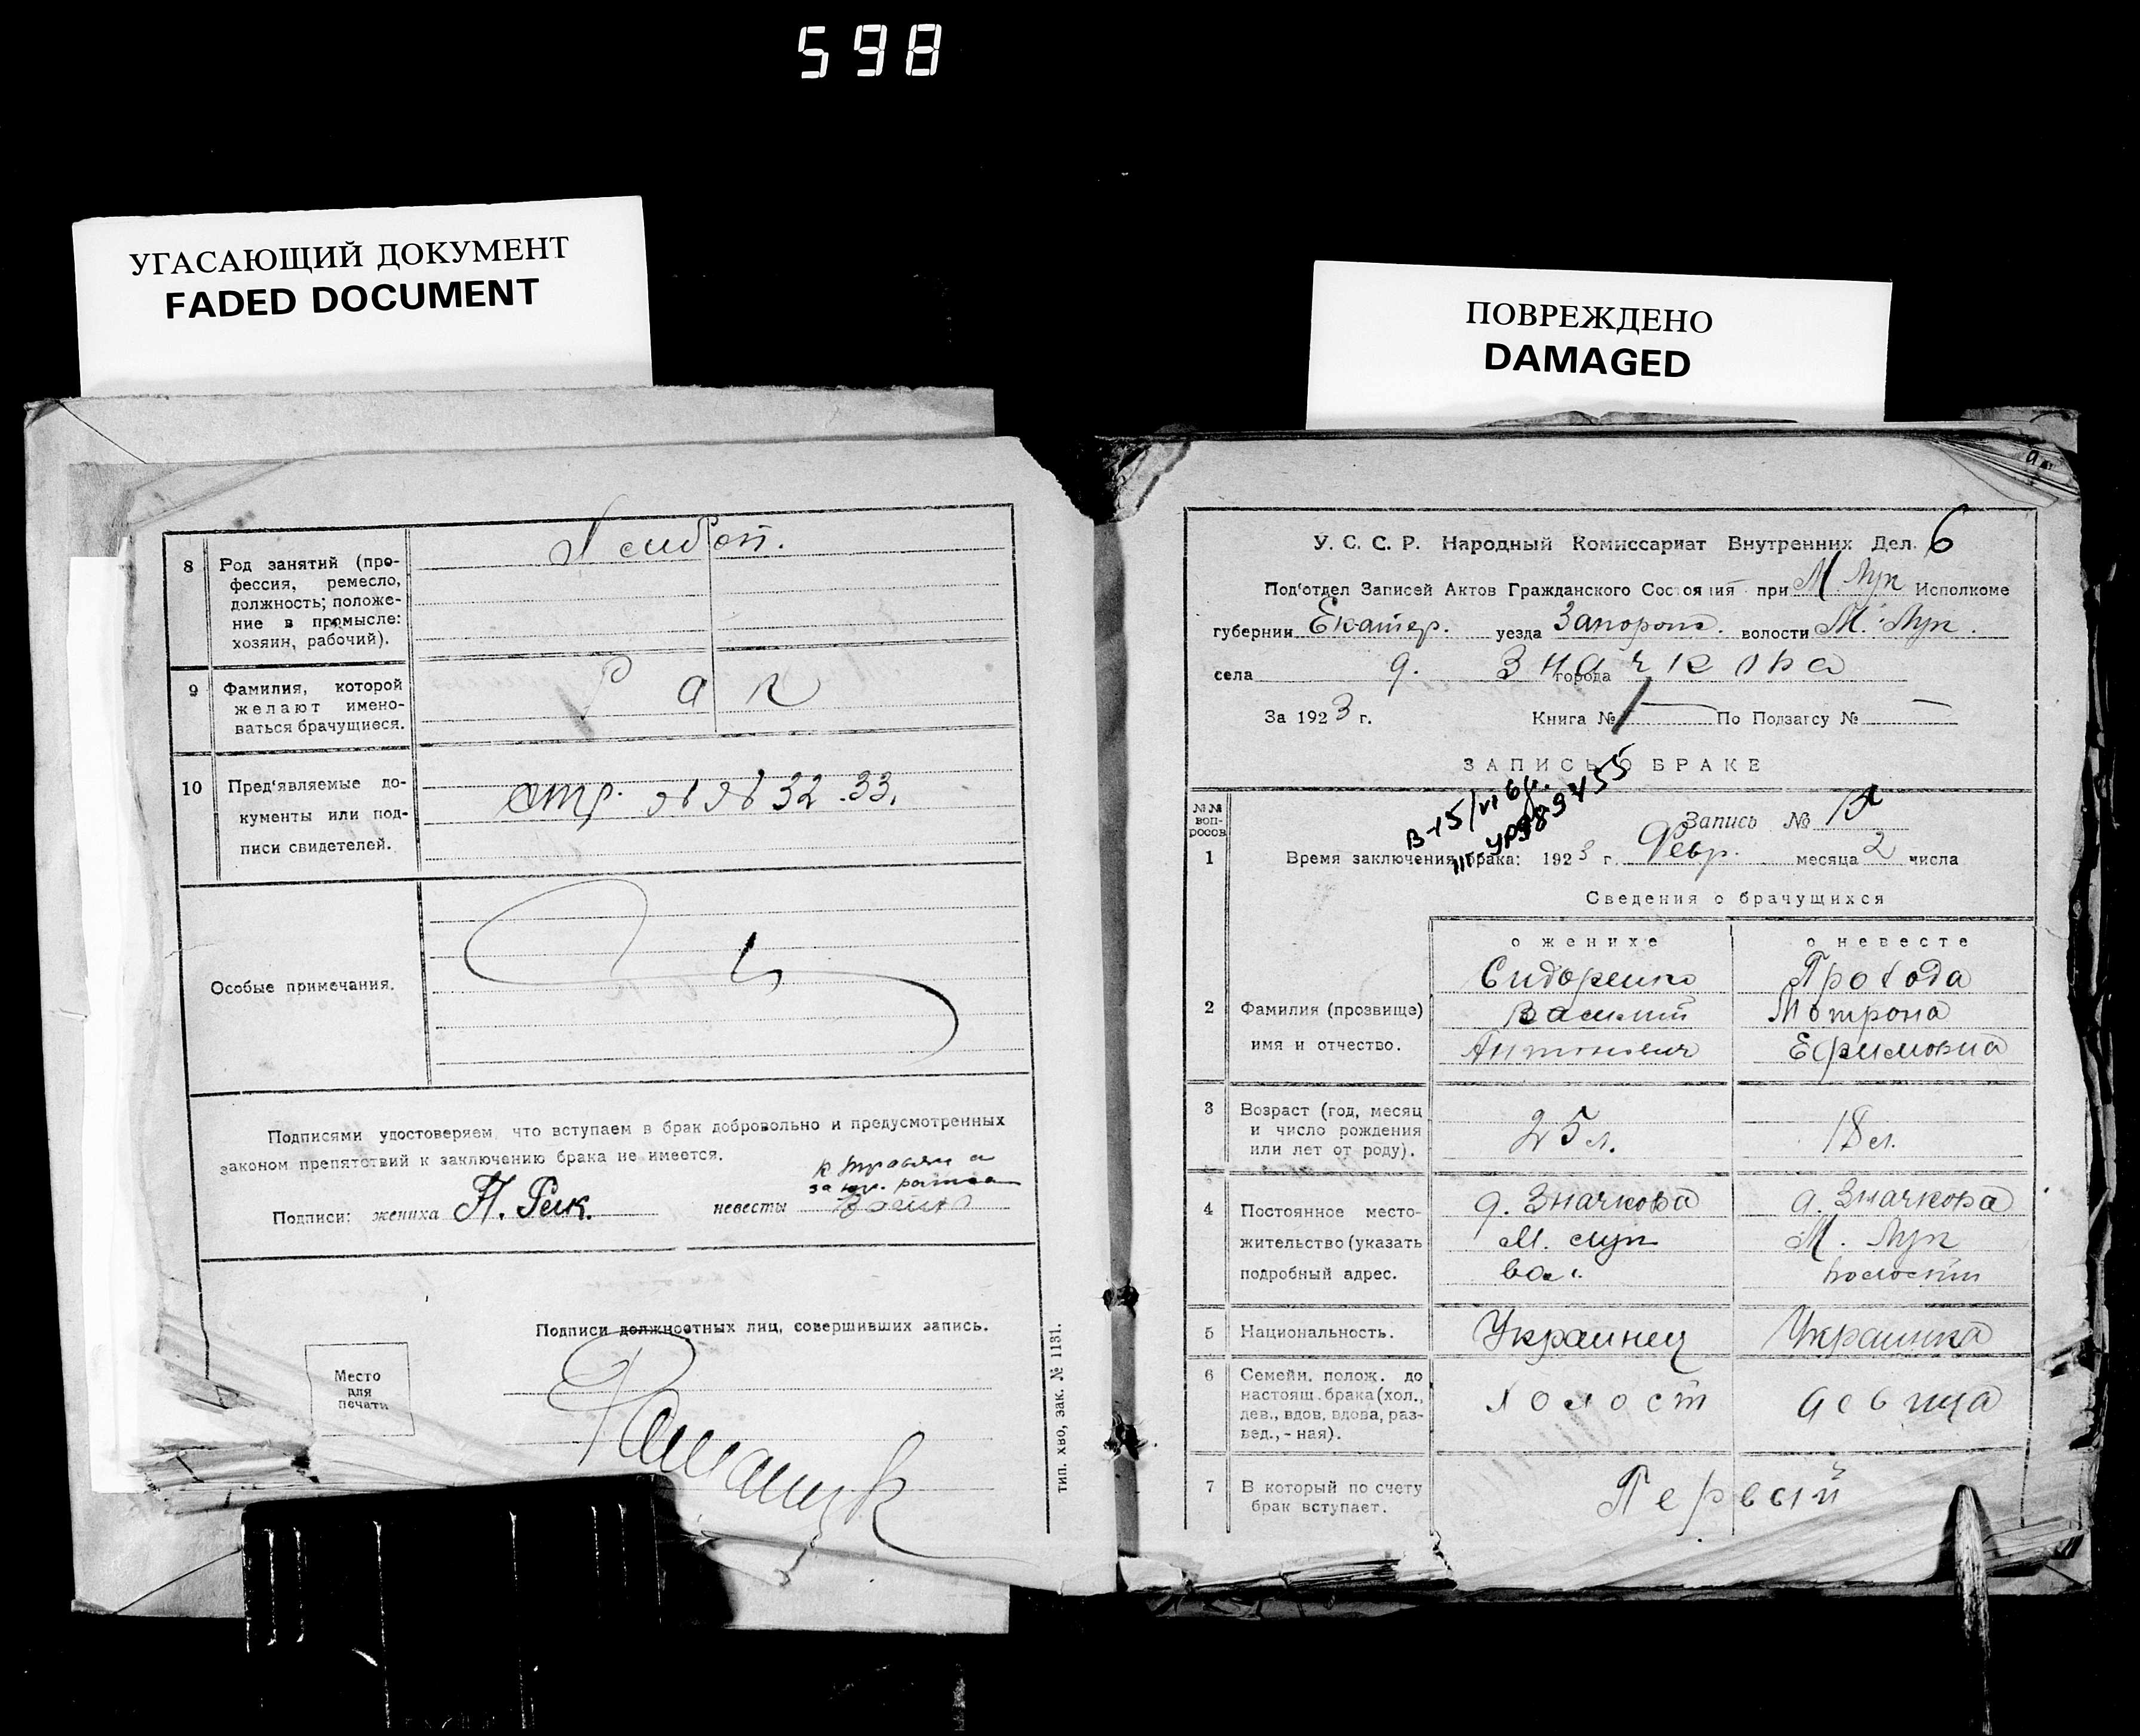 598
УГАСАЮЩИЙ ДОКУМЕНТ
FADED DOCUMENT
ПОВРЕЖДЕНО
DAMAGED
8 Род занятий (про-
фессия, ремесло,
должность; положе-
ние в промысле:
хозяин, рабочий).
9 Фамилия, которой
желают имено-
ваться брачущиеся.
Рак
10 Пред'являемые до-
кументы или под-
писи свидетелей.
32. 33.
Особые примечания.
Подписями удостоверяем, что вступаем в брак добровольно и предусмотренных
законом препятствий к заключению брака не имеется.
Подписи: жениха невесты
Подписи должностных лиц, совершивших запись.
Место
для
печати
тип. хво, зак. № 1131.
У. С. С. Р. Народный Комиссариат Внутренних Дел. 6
Под'отдел Записей Актов Гражданского Состояния при М. Лук Исполкоме
губернии Екатер. уезда Запорож. волости М. Лук.
села д. Значкова города
За 1923 г. Книга № По Подзагсу №
ЗАПИСЬ О БРАКЕ
№№ воп-
росов
Запись №
1 Время заключения брака: 1923 г. Февр. месяца 2 числа
Сведения о брачущихся
о женихе о невесте
2 Фамилия (прозвище)
имя и отчество.
Сидоренко
Василий
Антонович
Прохода
Мотрона
Ефимовна
3 Возраст (год, месяц
и число рождения
или лет от роду).
25 л. 18 л.
4 Постоянное место-
жительство (указать
подробный адрес.
д. Значкова
М. Лук
вол.
д. Значкова
М. Лук
волости
5 Национальность. Украинец Украинка
6 Семейн. полож. до
настоящ. брака (хол.,
дев., вдов, вдова, раз-
вед., - ная).
Холост девица
7 В который по счету
брак вступает.
Первый